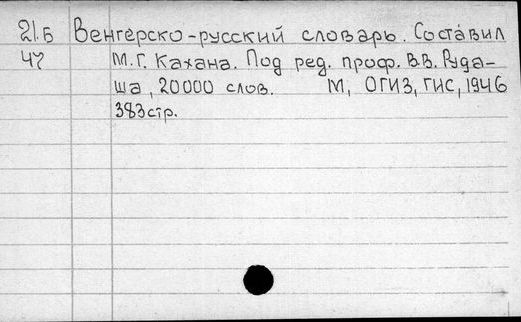 21.Б Венгерско-русский словарь. Составил
47 М.Г. Кахана. Под ред. проф. В.В. Руда-
ша, 20000 слов. М, ОГИЗ, ГИС, 1946
383стр.